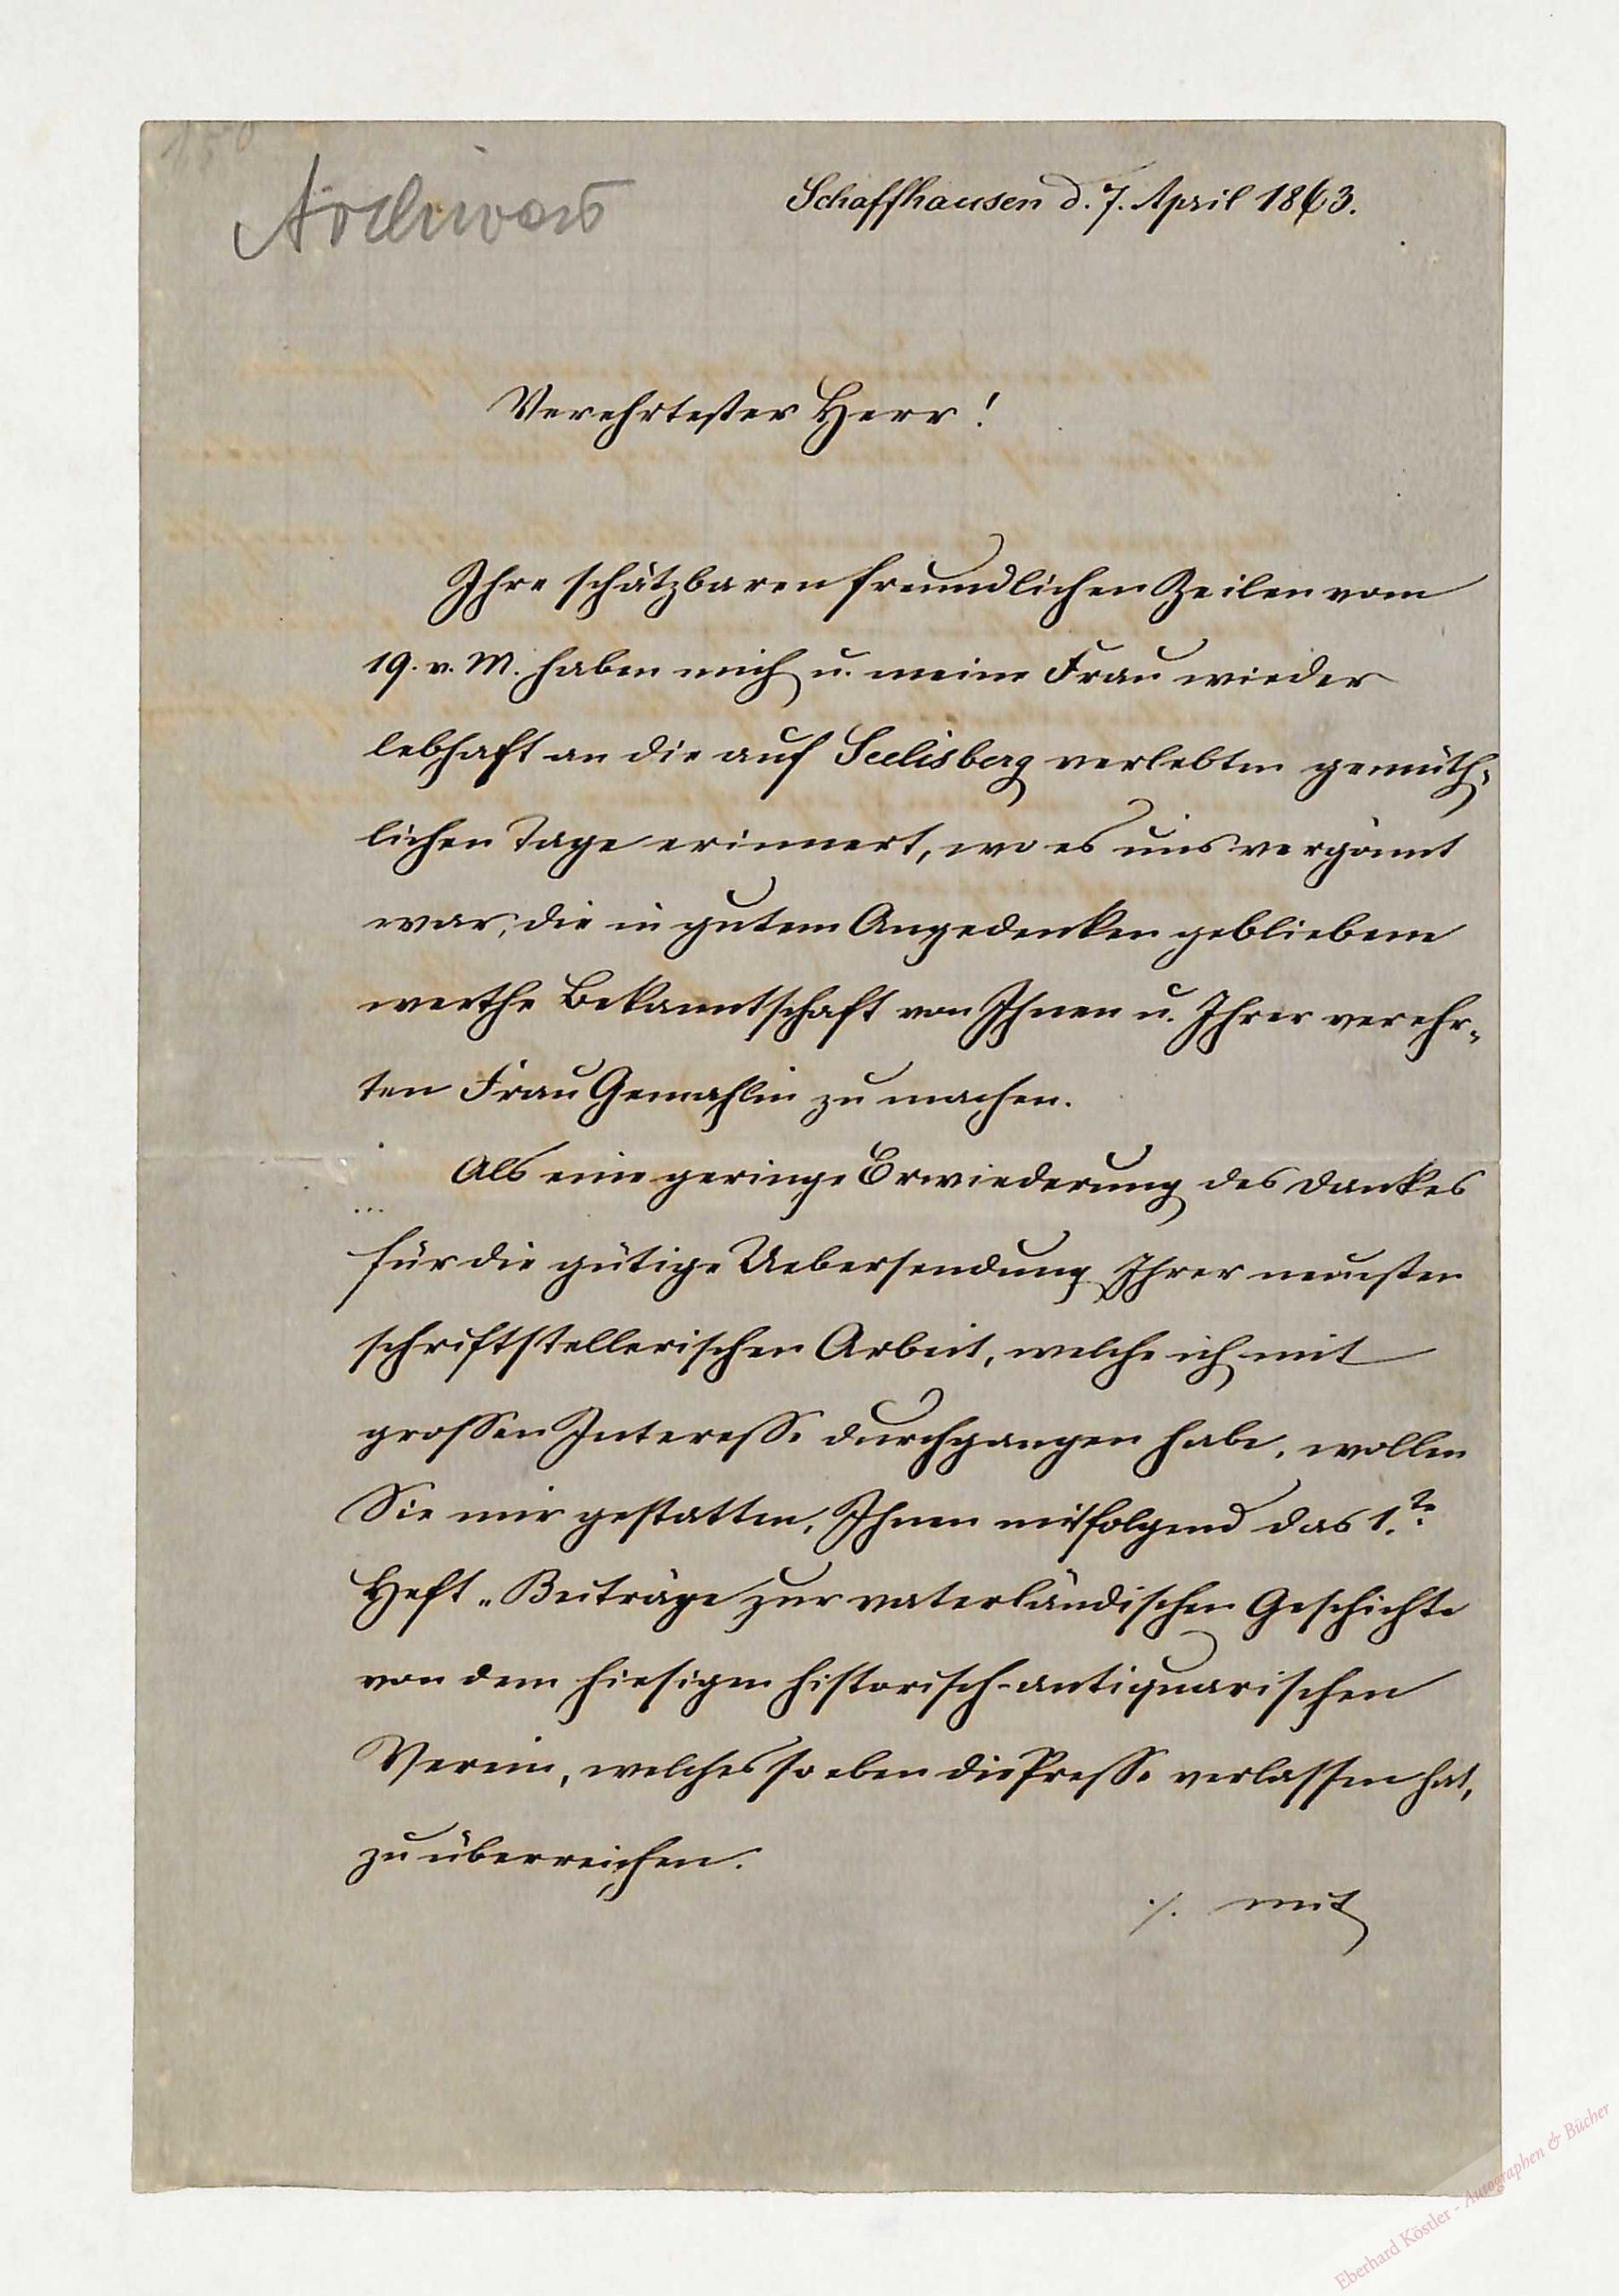 Archivar
Schaffhausen d. 7. April 1863.
Verehrtester Herr!
Ihre schätzbaren freundlichen Zeilen vom
19. v. M. haben mich u. meine Frau wieder
lebhaft an die auf Seelisberg verlebten gemüth-
lichen Tage erinnert, wo es uns vergönnt
war, die in gutem Angedenken gebliebene
werthe Bekanntschaft von Ihnen u. Ihrer verehr-
ten Frau Gemahlin zu machen.
Als eine geringe Erwiederung des Dankes
für die gütige Uebersendung Ihrer neuesten
schriftstellerischen Arbeit, welche ich mit
grossen Interesse durchgangen habe, wollen
Sie mir gestatten, Ihnen mitfolgend das 1.te
Heft „Beiträge zur vaterländischen Geschichte
von dem hiesigen historisch-antiquarischen
Verein, welches so eben die Presse verlassen hat,
zu überreichen.
./. mit
Eberhard Köstler - Autographen & Bücher